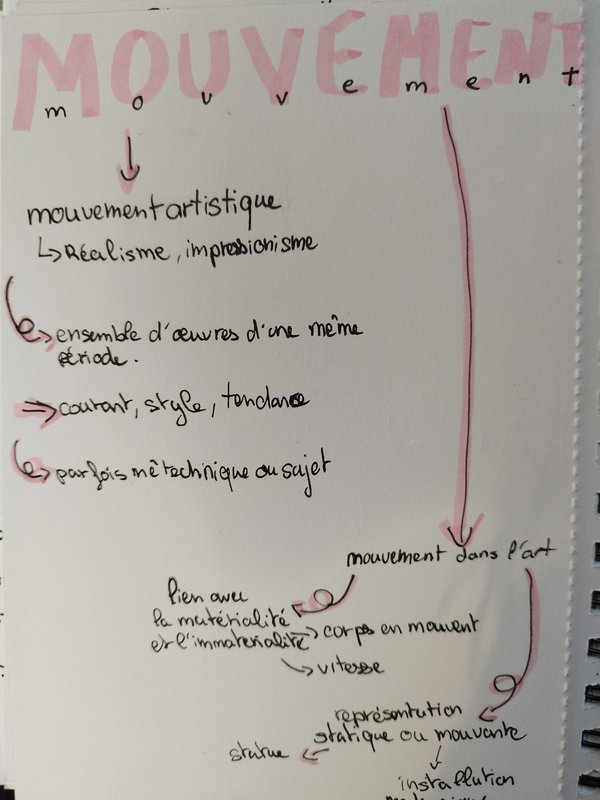 MOUVEMENT
mouvement
mouvement artistique
Réalisme, impressionisme
ensemble d'œuvres d'une même
période.
courant, style, tendance
parfois mê technique ou sujet
mouvement dans l'art
lien avec
la matérialité
et l'immaterialité
corps en mouvent
vitesse
représentation
statique ou mouvante
statue
installation